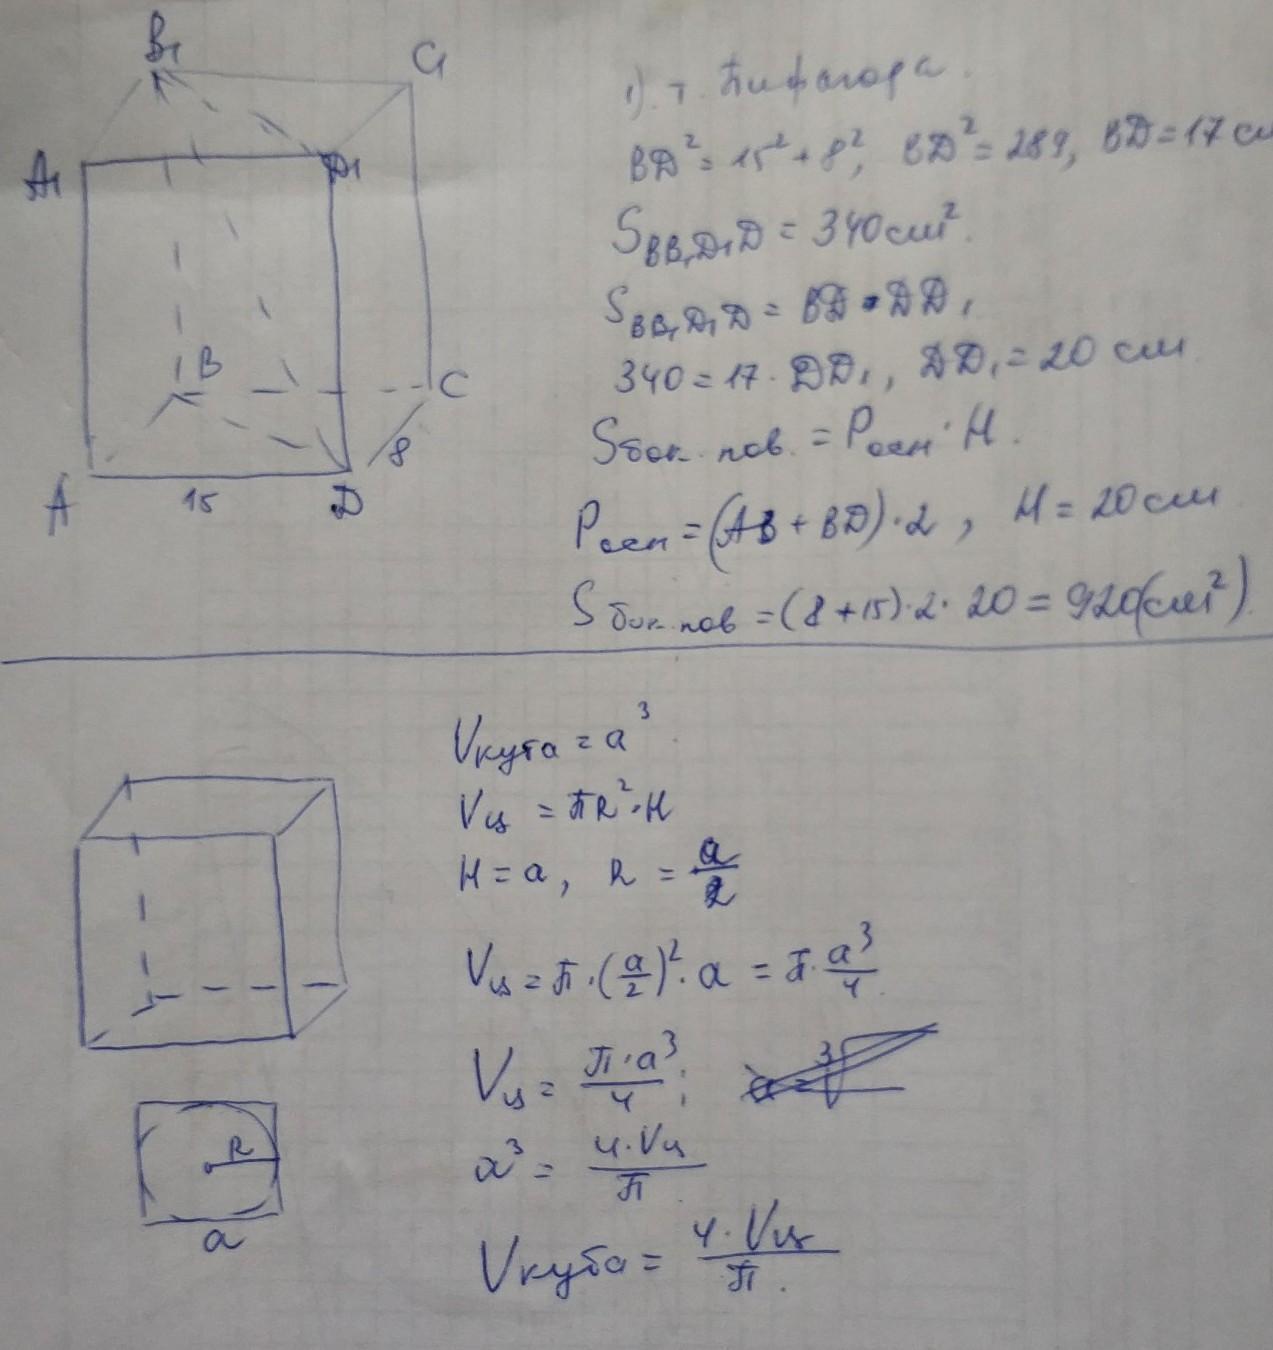 B₁
C₁
A₁
D₁
B
C
8
A
15
D
1). т. Пифагора.
BD² = 15² + 8², BD² = 289, BD = 17 см
S BB₁D₁D = 340 см².
S BB₁D₁D = BD · DD₁
340 = 17 · DD₁, DD₁ = 20 см
Sбок. пов. = Pосн · H.
Pосн = (AB + BD) · 2, H = 20 см
Sбок. пов = (8 + 15) · 2 · 20 = 920 (см²)
Vкуба = a³.
Vц = πR² · H
H = a, R = a/2
Vц = π · (a/2)² · a = π · a³/4.
Vц = π · a³/4;
a³ = 4 · Vц/π.
Vкуба = 4 · Vц/π.
R
a